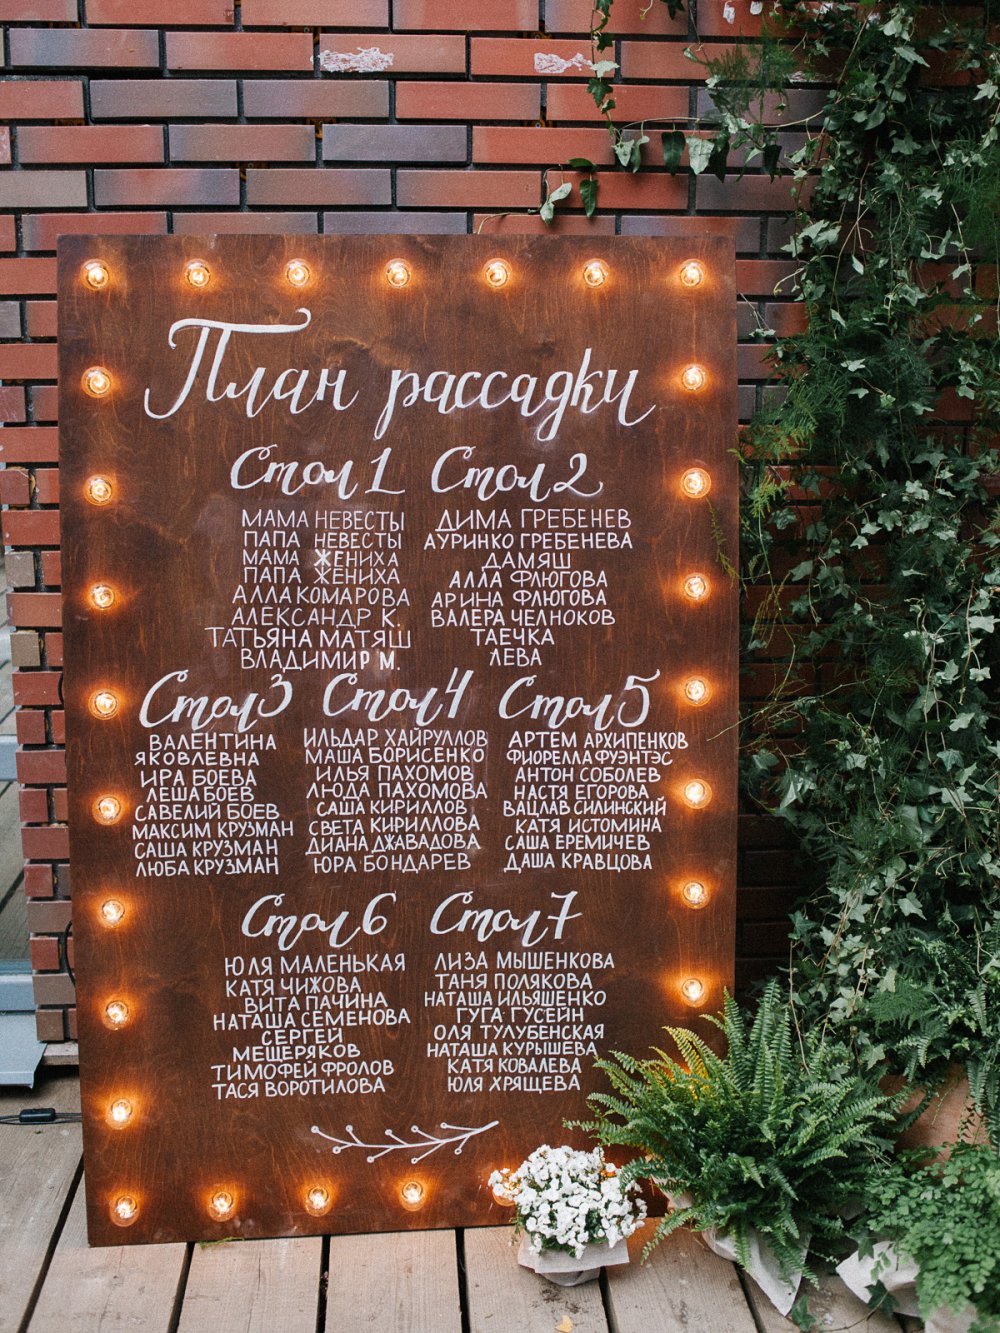 План рассадки
Стол 1
МАМА НЕВЕСТЫ
ПАПА НЕВЕСТЫ
МАМА ЖЕНИХА
ПАПА ЖЕНИХА
АЛЛА КОМАРОВА
АЛЕКСАНДР К.
ТАТЬЯНА МАТЯШ
ВЛАДИМИР М.
Стол 2
ДИМА ГРЕБЕНЕВ
АУРИНКО ГРЕБЕНЕВА
ДАМЯШ
АЛЛА ФЛЮГОВА
АРИНА ФЛЮГОВА
ВАЛЕРА ЧЕЛНОКОВ
ТАЕЧКА
ЛЕВА
Стол 3
ВАЛЕНТИНА
ЯКОВЛЕВНА
ИРА БОЕВА
ЛЕША БОЕВ
САВЕЛИЙ БОЕВ
МАКСИМ КРУЗМАН
САША КРУЗМАН
ЛЮБА КРУЗМАН
Стол 4
ИЛЬДАР ХАЙРУЛЛОВ
МАША БОРИСЕНКО
ИЛЬЯ ПАХОМОВ
ЛЮДА ПАХОМОВА
САША КИРИЛЛОВ
СВЕТА КИРИЛЛОВА
ДИАНА ДЖАВАДОВА
ЮРА БОНДАРЕВ
Стол 5
АРТЕМ АРХИПЕНКОВ
ФИОРЕЛЛА ФУЭНТЭС
АНТОН СОБОЛЕВ
НАСТЯ ЕГОРОВА
ВАЦЛАВ СИЛИНСКИЙ
КАТЯ ИСТОМИНА
САША ЕРЕМИЧЕВ
ДАША КРАВЦОВА
Стол 6
ЮЛЯ МАЛЕНЬКАЯ
КАТЯ ЧИЖОВА
ВИТА ПАЧИНА
НАТАША СЕМЕНОВА
СЕРГЕЙ
МЕЩЕРЯКОВ
ТИМОФЕЙ ФРОЛОВ
ТАСЯ ВОРОТИЛОВА
Стол 7
ЛИЗА МЫШЕНКОВА
ТАНЯ ПОЛЯКОВА
НАТАША ИЛЬЯШЕНКО
ГУГА ГУСЕЙН
ОЛЯ ТУЛУБЕНСКАЯ
НАТАША КУРЫШЕВА
КАТЯ КОВАЛЕВА
ЮЛЯ ХРЯЩЕВА